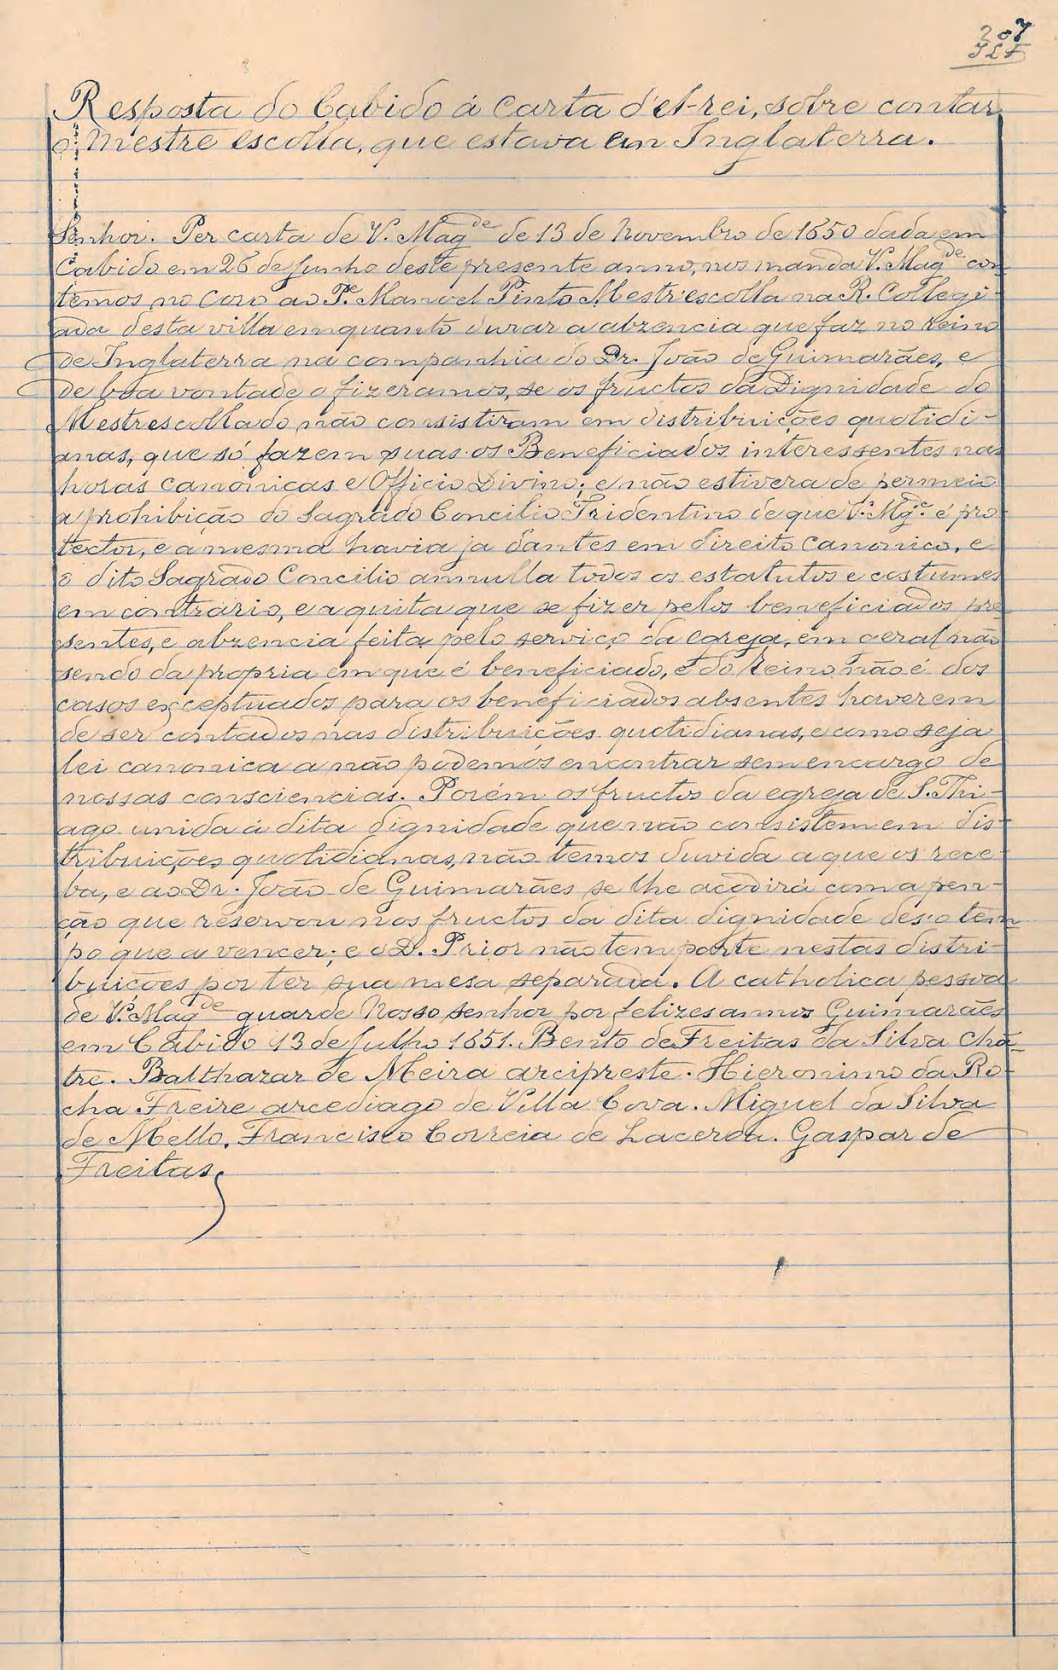 207
Resposta do Cabido á carta d'el-rei, sobre contar
o mestre escolla, que estava em Inglaterra.
Senhor. Per carta de V. Mag.de de 13 de Novembro de 1650 dada em
Cabido em 26 de Junho deste presente anno, nos manda V. Mag.de con
temos no Coro ao P.e Manoel Pinto Mestr'escolla na R. Collegi-
ada desta villa emquanto durar a abzencia que faz no reino
de Inglaterra na companhia do Dr. João de Guimarães, e
de boa vontade o fizeramos, se os fructos da Dignidade do
Mestrescollado não consistiram em distribuições quotidi-
anas, que só fazem suas os Beneficiados interessentes nas
horas canonicas e Officio Divino; e não estivera de permeio
a prohibição do Sagrado Concilio Tridentino de que V. Mg.e é pro
tector, e a mesma havia ja dantes em direito canonico, e
o dito Sagrado Concilio annulla todos os estatutos e costumes
em contrario, e a quita que se fizer pelos beneficiados pre
sentes, e abzencia feita pelo serviço da egreja, em geral não
sendo da propria em que é beneficiado, e do Reino não é dos
casos exceptuados para os beneficiados absentes haverem
de ser contados nas distribuições quotidianas, e como seja
lei canonica a não podemos encontrar sem encargo de
nossas consciencias. Porém os fructos da egreja de S. Thi-
ago unida á dita dignidade que não consistem em dis-
tribuições quotidianas, não temos duvida a que os rece-
ba, e ao Dr. João de Guimarães se lhe acodirá com a pen-
ção que reservou nos fructos da dita dignidade des o tem
po que a vencer; e o D. Prior não tem parte nestas distri-
buições por ter sua mesa separada. A catholica pessoa
de V. Mag.de guarde Nosso Senhor por felizes annos Guimarães
em Cabido 13 de Julho 1651. Bento de Freitas da Silva Chan-
tre. Balthazar de Meira arcipreste. Hieronimo da Ro-
cha Freire arcediago de Villa Cova. Miguel da Silva
de Mello. Francisco Correia de Lacerda. Gaspar de
Freitas